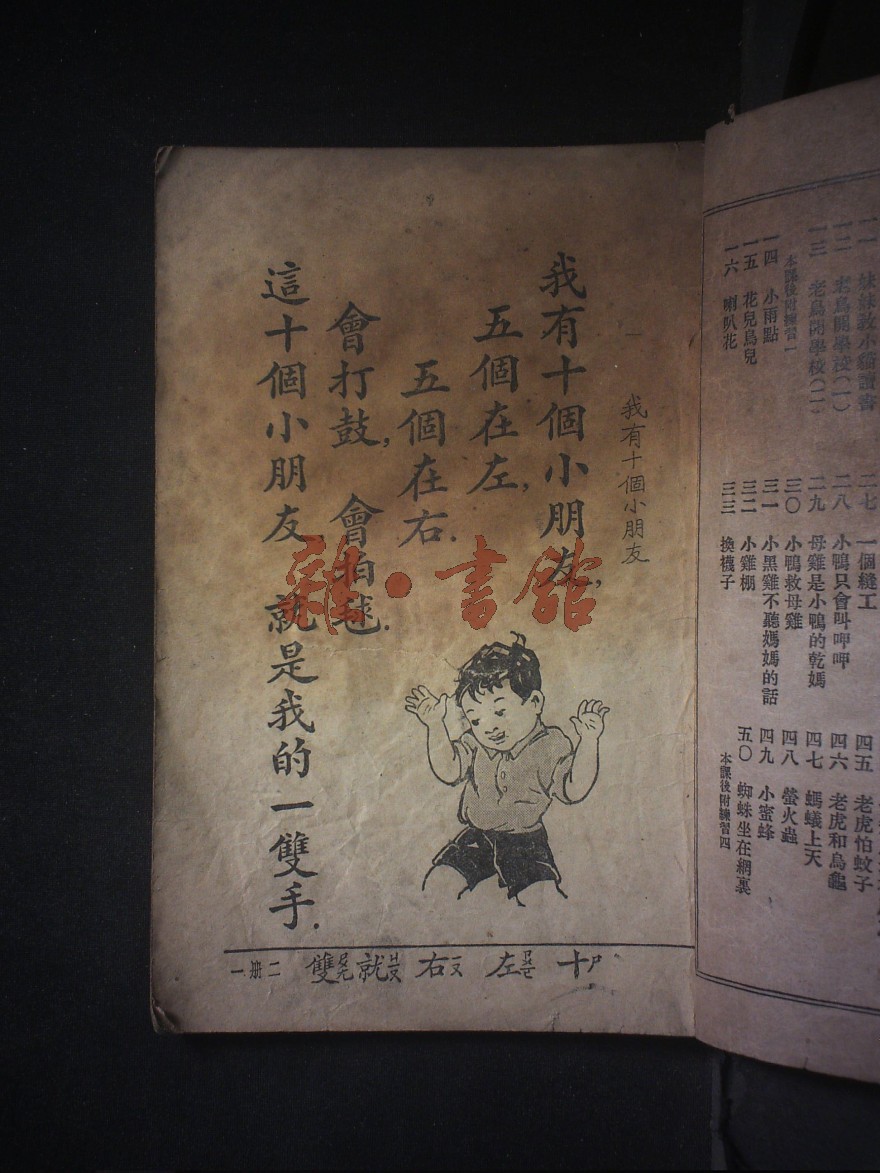 一一 妹妹教小貓讀書
一二 老鳥開學校(一)
一三 老鳥開學校(二)
本課後附練習一
一四 小雨點
一五 花兒鳥兒
一六 喇叭花
二七 一個縫工
二八 小鴨只會叫呷呷
二九 母雞是小鴨的乾媽
三〇 小鴨救母雞
三一 小黑雞不聽媽媽的話
三二 小雞棚
三三 換襪子
四五 老虎怕蚊子
四六 老虎和烏龜
四七 螞蟻上天
四八 螢火蟲
四九 小蜜蜂
五〇 蜘蛛坐在網裏
本課後附練習四
一 我有十個小朋友
我有十個小朋友,
五個在左,
五個在右.
會打鼓, 會拍球.
這十個小朋友 就是我的一雙手.
十ㄕ 左ㄗㄨㄛ 右ㄧㄡ 就ㄐㄧㄡ 雙ㄕㄨㄤ
二册 一
雜·書館